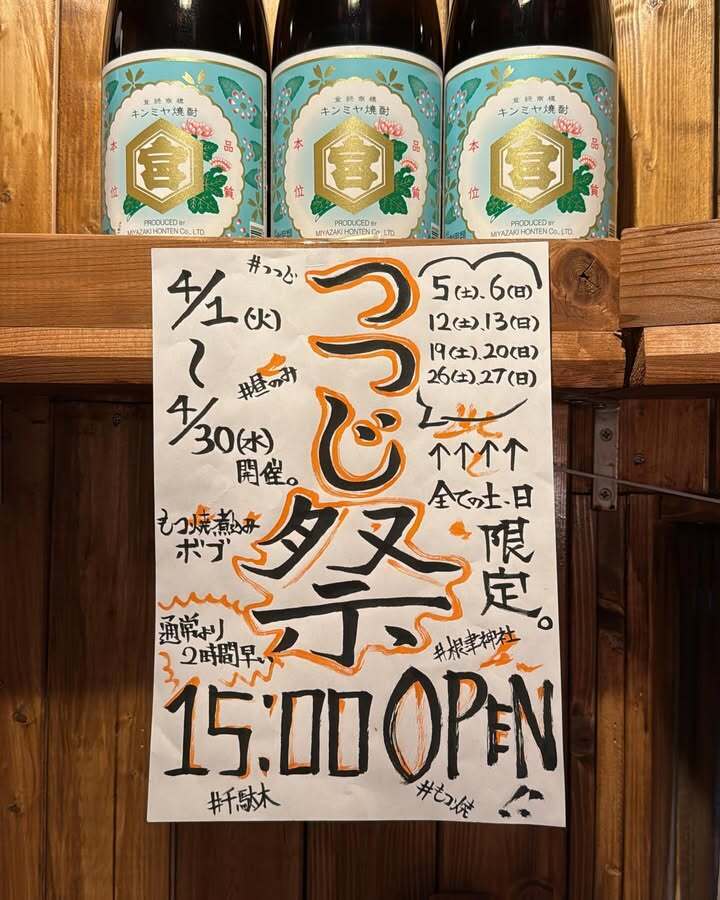 宮崎本店
キンミヤ焼酎
本位
品質
PRODUCED BY
MIYAZAKI HONTEN CO., LTD.
キンミヤ焼酎
本位
品質
PRODUCED BY
MIYAZAKI HONTEN CO., LTD.
キンミヤ焼酎
本位
品質
PRODUCED BY
MIYAZAKI HONTEN CO., LTD.
#つつじ
つつじ祭
4/1(火)
〜
4/30(水)
開催。
#昼のみ
5(土)、6(日)
12(土)、13(日)
19(土)、20(日)
26(土)、27(日)
↑↑↑↑
全ての土、日
限定。
もつ焼、煮込み
ボブ
通常より
2時間早い
#根津神社
15:00 OPEN!!
#千駄木
#もつ焼